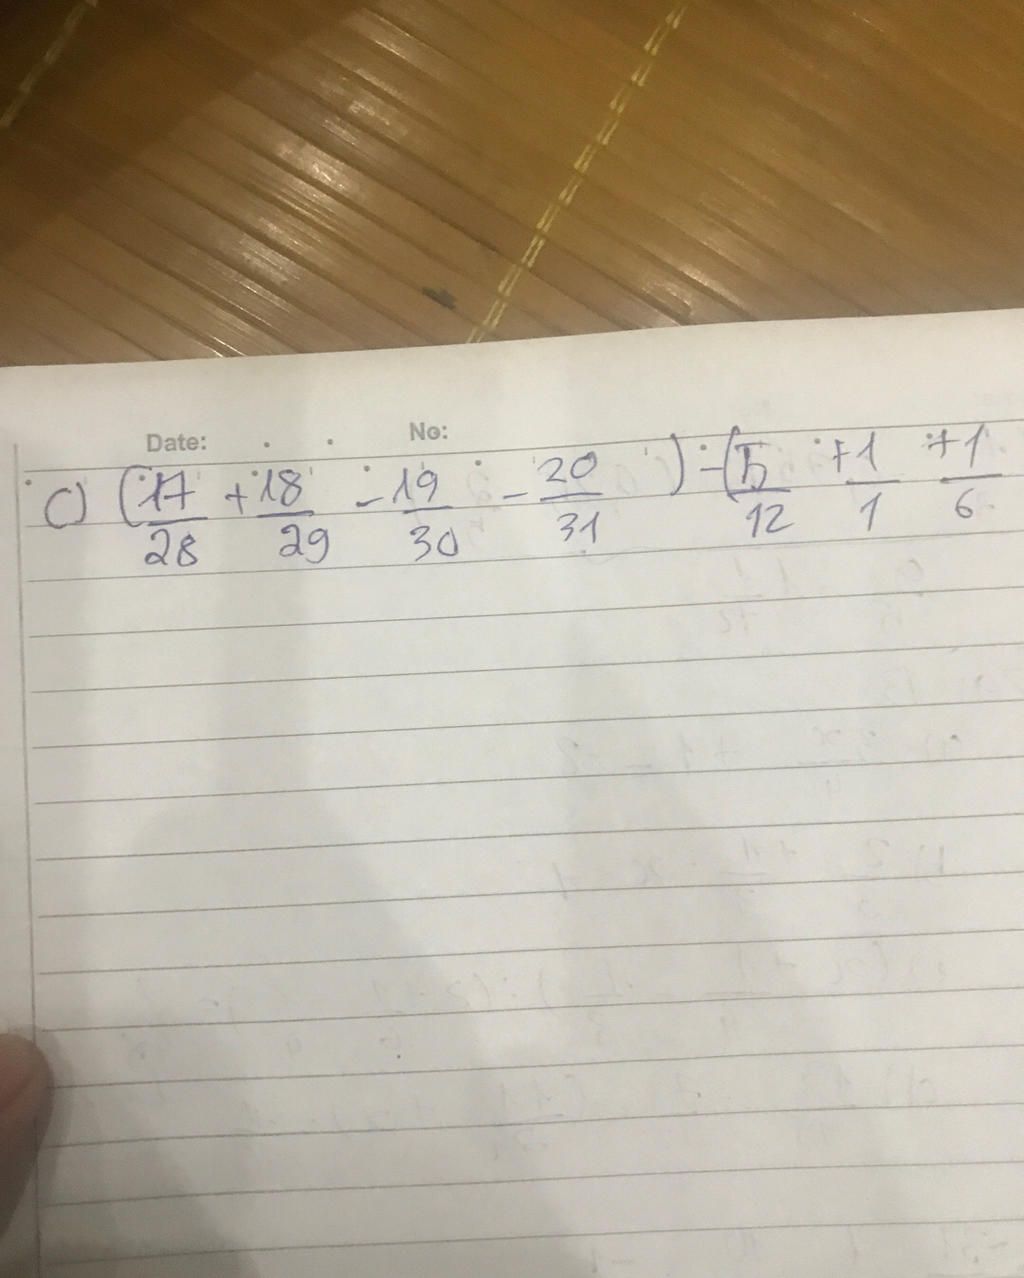 Date: . . No:
c) (17/28 + 18/29 - 19/30 - 20/31) - (5/12 + 1/1 + 1/6